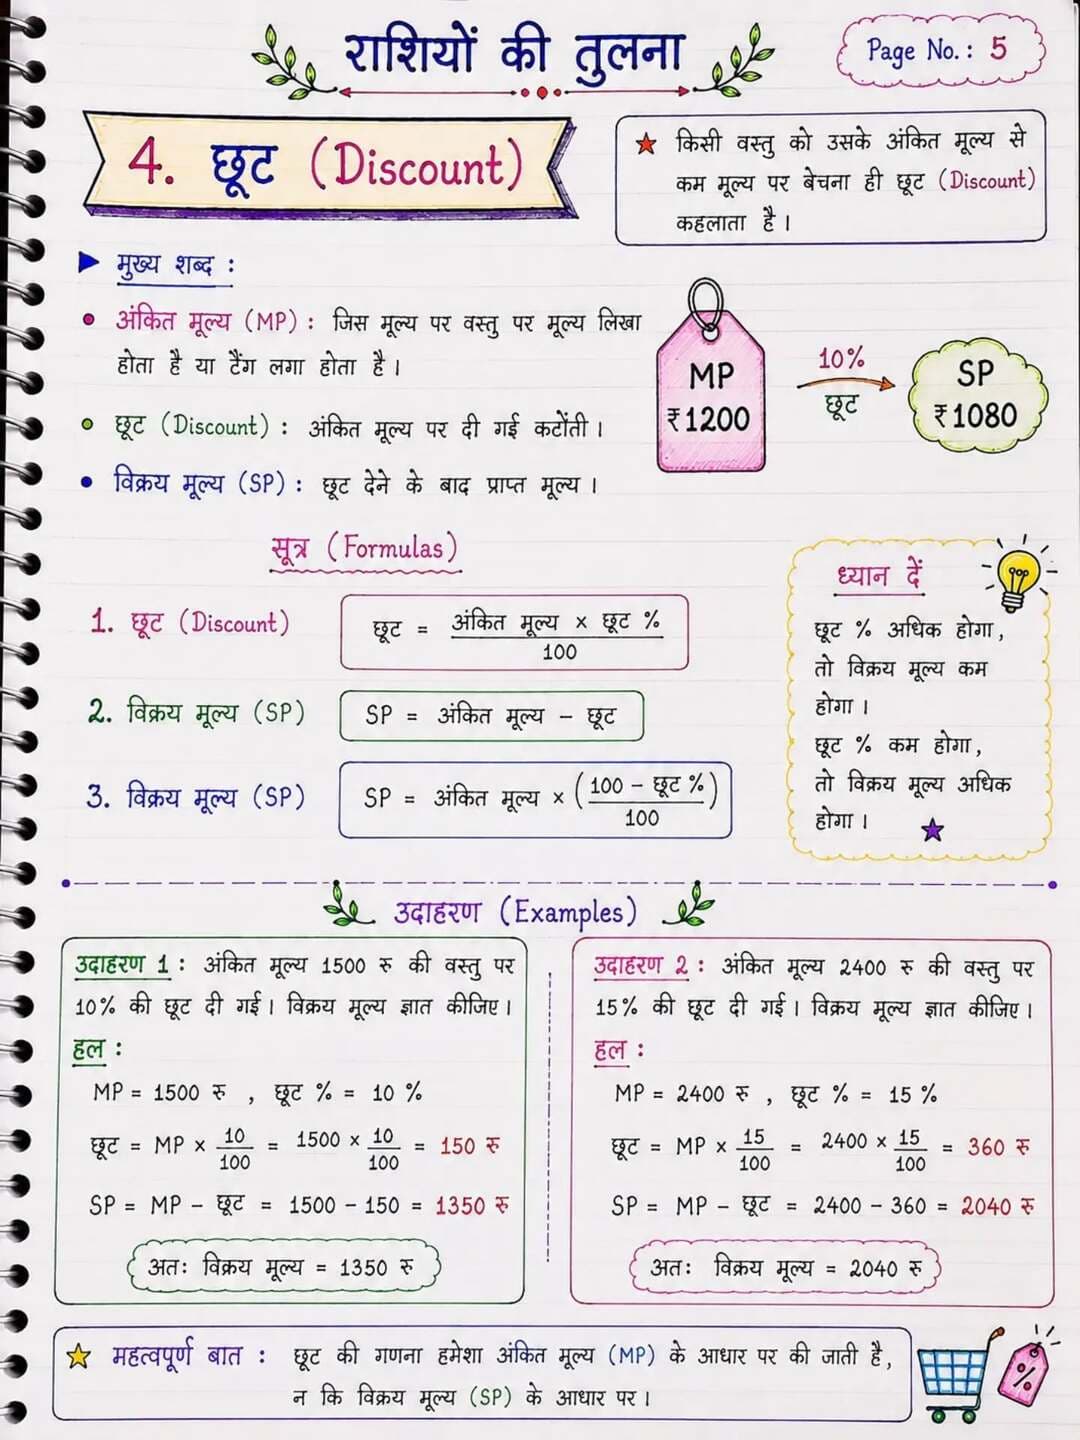 राशियों की तुलना
Page No. : 5
4. छूट (Discount)
★ किसी वस्तु को उसके अंकित मूल्य से
कम मूल्य पर बेचना ही छूट (Discount)
कहलाता है।
▶ मुख्य शब्द :
• अंकित मूल्य (MP) : जिस मूल्य पर वस्तु पर मूल्य लिखा
होता है या टैंग लगा होता है।
• छूट (Discount) : अंकित मूल्य पर दी गई कटोंती।
• विक्रय मूल्य (SP) : छूट देने के बाद प्राप्त मूल्य।
MP
₹1200
10%
छूट
SP
₹1080
सूत्र (Formulas)
1. छूट (Discount)
छूट = अंकित मूल्य × छूट %
100
2. विक्रय मूल्य (SP)
SP = अंकित मूल्य − छूट
3. विक्रय मूल्य (SP)
SP = अंकित मूल्य × (100 − छूट %)
100
ध्यान दें
छूट % अधिक होगा,
तो विक्रय मूल्य कम
होगा।
छूट % कम होगा,
तो विक्रय मूल्य अधिक
होगा। ★
उदाहरण (Examples)
उदाहरण 1 : अंकित मूल्य 1500 रु की वस्तु पर
10% की छूट दी गई। विक्रय मूल्य ज्ञात कीजिए।
हल :
MP = 1500 रु , छूट % = 10 %
छूट = MP × 10/100 = 1500 × 10/100 = 150 रु
SP = MP − छूट = 1500 − 150 = 1350 रु
अतः विक्रय मूल्य = 1350 रु
उदाहरण 2 : अंकित मूल्य 2400 रु की वस्तु पर
15% की छूट दी गई। विक्रय मूल्य ज्ञात कीजिए।
हल :
MP = 2400 रु , छूट % = 15 %
छूट = MP × 15/100 = 2400 × 15/100 = 360 रु
SP = MP − छूट = 2400 − 360 = 2040 रु
अतः विक्रय मूल्य = 2040 रु
★ महत्वपूर्ण बात : छूट की गणना हमेशा अंकित मूल्य (MP) के आधार पर की जाती है,
न कि विक्रय मूल्य (SP) के आधार पर।
%